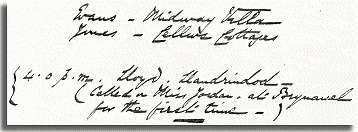 Evans - Midway Villa
Jones - Cottages
{4.0 p.m. Lloyd. Llandrindod -
(Called on Miss Jordan. at Brynawel
for the first time - }